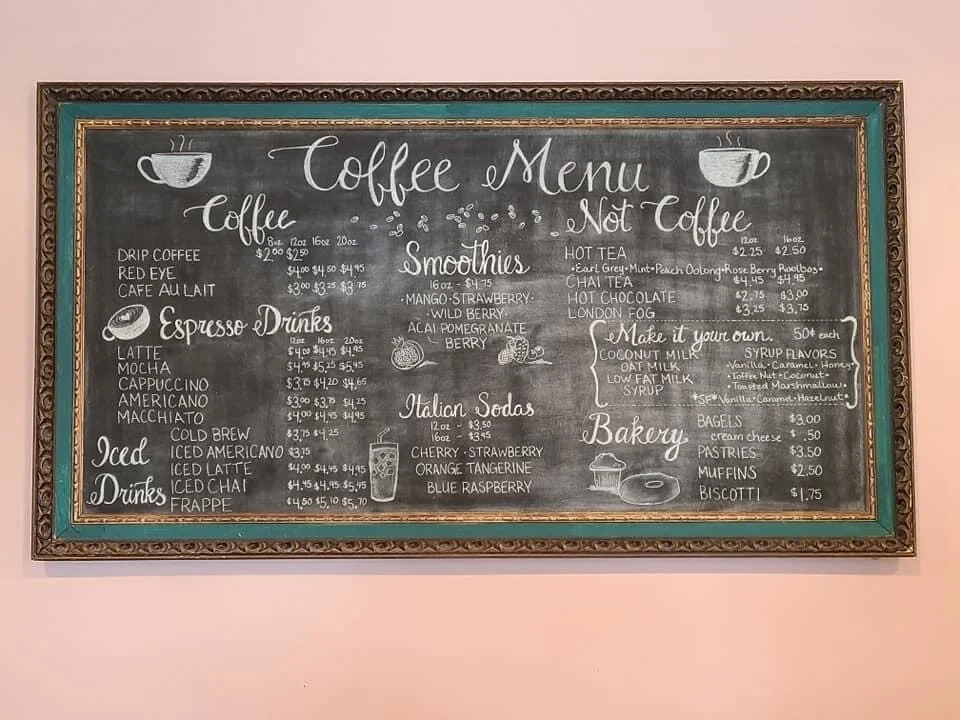 Coffee Menu
Coffee
8oz 12oz 16oz 20oz
DRIP COFFEE $2.00 $2.50
RED EYE $4.00 $4.50 $4.95
CAFE AU LAIT $3.00 $3.25 $3.75
Espresso Drinks
12oz 16oz 20oz
LATTE $4.00 $4.45 $4.95
MOCHA $4.95 $5.25 $5.95
CAPPUCCINO $3.75 $4.20 $4.65
AMERICANO $3.00 $3.75 $4.25
MACCHIATO $4.00 $4.45 $4.95
Iced Drinks
COLD BREW $3.75 $4.25
ICED AMERICANO $3.75
ICED LATTE $4.00 $4.45 $4.95
ICED CHAI $4.45 $4.95 $5.45
FRAPPE $4.50 $5.10 $5.70
Smoothies
16oz - $4.75
•MANGO•STRAWBERRY•
•WILD BERRY•
ACAI POMEGRANATE
BERRY
Italian Sodas
12oz - $3.50
16oz - $3.95
CHERRY • STRAWBERRY
ORANGE TANGERINE
BLUE RASPBERRY
Not Coffee
12oz 16oz
HOT TEA $2.25 $2.50
•Earl Grey•Mint•Peach Oolong•Rose Berry Rooibos•
CHAI TEA $4.45 $4.95
HOT CHOCOLATE $2.75 $3.00
LONDON FOG $3.25 $3.75
Make it your own. 50¢ each
COCONUT MILK
OAT MILK
LOW FAT MILK
SYRUP
SYRUP FLAVORS
•Vanilla•Caramel•Honey•
•Toffee Nut•Coconut•
•Toasted Marshmallow•
*SF* Vanilla•Caramel•Hazelnut•
Bakery
BAGELS $3.00
cream cheese $.50
PASTRIES $3.50
MUFFINS $2.50
BISCOTTI $1.75